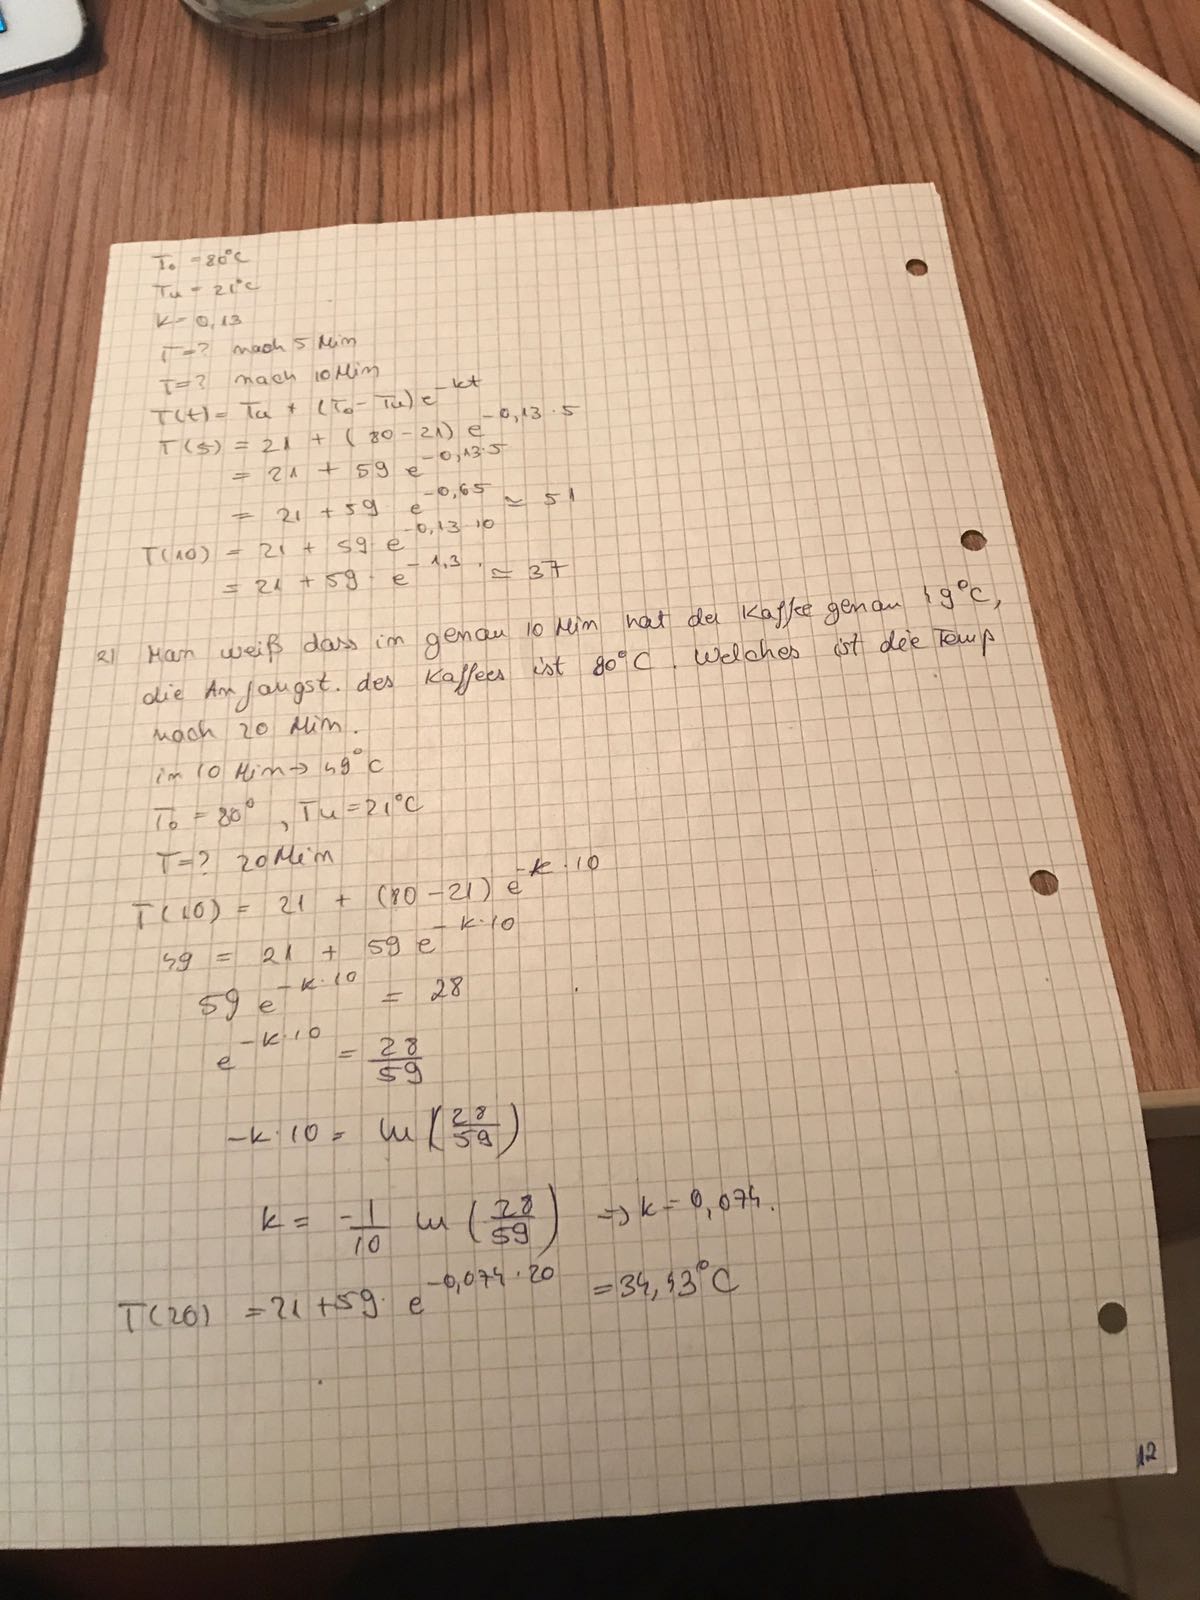 T₀ = 80°C
Tu = 21°C
K = 0,13
T=? nach 5 Min
T=? nach 10 Min
T(t) = Tu + (T₀ - Tu) e^-kt
T(5) = 21 + (80-21) e^-0,13·5
= 21 + 59 e^-0,13·5
= 21 + 59 e^-0,65 ≃ 51
T(10) = 21 + 59· e^-0,13·10
= 21 + 59· e^-1,3 ≃ 37
2) Man weiß dass in genau 10 Min hat der Kaffee genau 49°C,
die Anfangst. des Kaffees ist 80°C. Welches ist die Temp
nach 20 Min.
in 10 Min → 49°C
T₀ = 80°, Tu = 21°C
T=? 20 Min
T(10) = 21 + (80-21) e^-k·10
49 = 21 + 59 e^-k·10
59 e^-k·10 = 28
e^-k·10 = 28/59
-k·10 = ln(28/59)
k = -1/10 ln(28/59) => k = 0,074.
T(20) = 21 + 59· e^-0,074·20 = 34,43°C
12